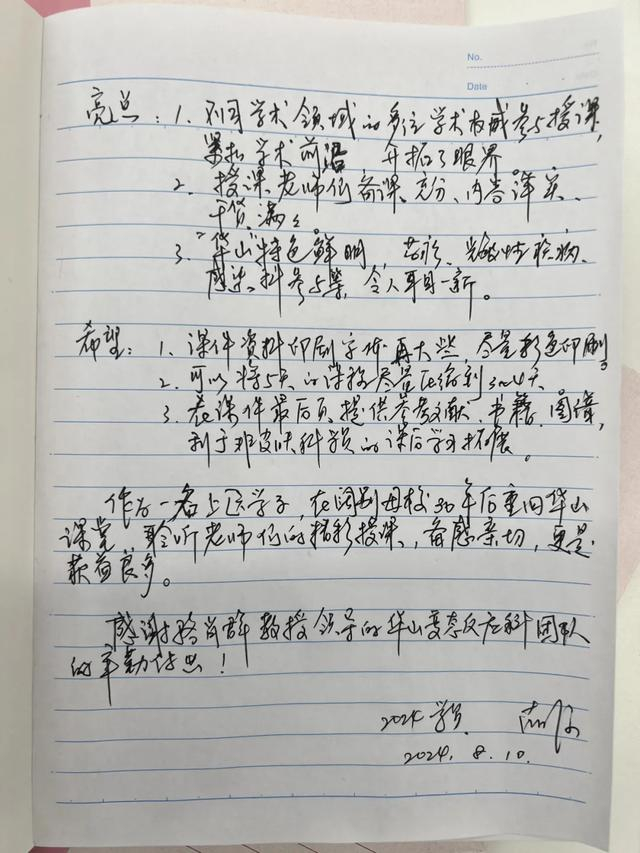 No.
Date
亮点：1. 不同学术领域的多位学术权威参与授课，
紧扣学术前沿 开拓了眼界
2. 授课老师们备课充分、内容详实、
干货满满。
3. "华山"特色鲜明，
感染科参与等，令人耳目一新。
希望：1. 课件资料印刷字体再大些，尽量彩色印刷
2. 可以将5天的课程尽量压缩到3~4天
3. 在课件最后页提供参考文献、书籍、图谱，
利于非皮肤科学员的课后学习拓展。
作为一名上医学子，在阔别母校30年后重回华山
课堂，聆听老师们的精彩授课，备感亲切，更是
获益良多。
感谢骆肖群教授领导的华山变态反应科团队
的辛勤付出！
2024学员
2024.8.10.